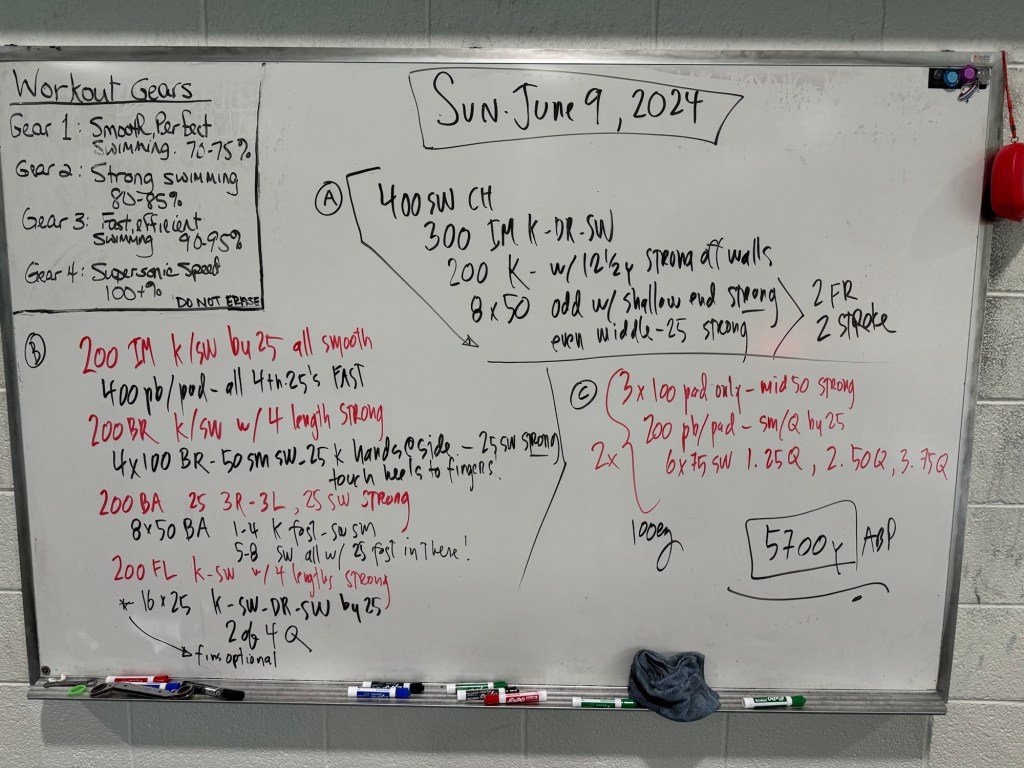 Workout Gears
Gear 1: Smooth, Perfect
Swimming. 70-75%
Gear 2: Strong swimming
80-85%
Gear 3: Fast, efficient
Swimming 90-95%
Gear 4: Supersonic Speed
100+%
DO NOT ERASE
Sun. June 9, 2024
A
400 SW CH
300 IM K-DR-SW
200 K - w/ 12 1/2 y strong off walls
8x50 odd w/ shallow end strong
even middle-25 strong
2 FR
2 Stroke
B
200 IM K/SW by 25 all smooth
400 pb/pad - all 4th 25's FAST
200 BR K/SW w/ 4 length strong
4x100 BR - 50 sm sw - 25 K hands @ side - 25 sw strong
touch heels to fingers.
200 BA 25 3R-3L, 25 SW strong
8x50 BA 1-4 K fast - sw sm
5-8 sw all w/ 25 fast in there!
200 FL K-SW w/ 4 lengths strong
* 16x25 K-SW-DR-SW by 25
2 of 4 Q
fins optional
C
2x
3x100 pad only - mid 50 strong
200 pb/pad - sm/Q by 25
6x75 SW 1. 25Q, 2. 50Q, 3. 75Q
100 ez
5700y
ABP